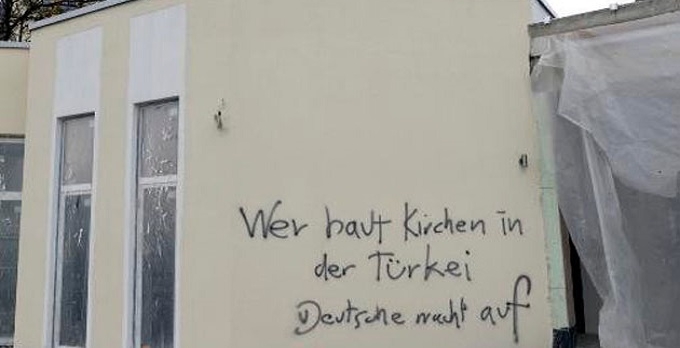 Wer baut Kirchen in
der Türkei
Deutsche wacht auf